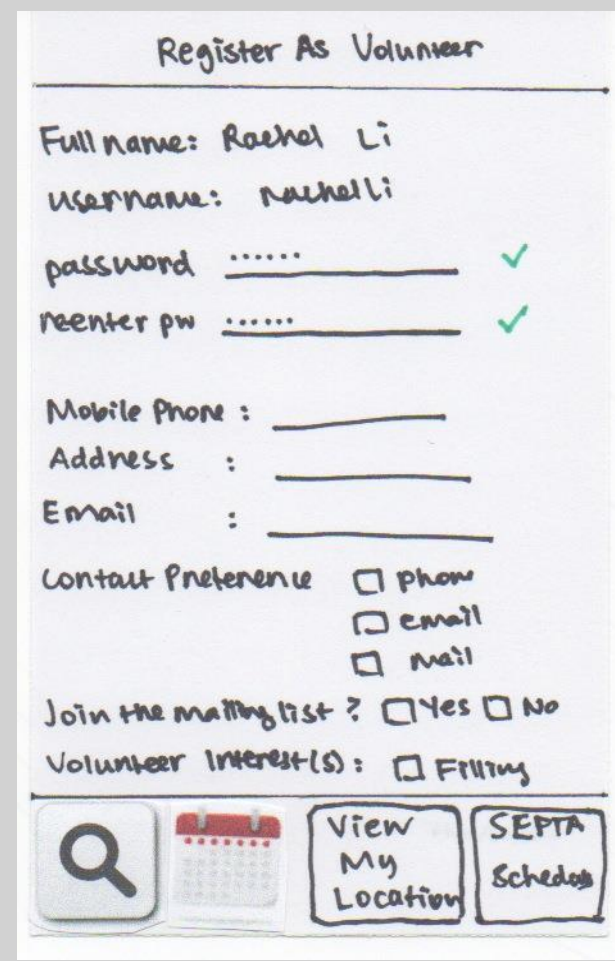 Register As Volunteer
Full name: Rachel Li
username: rachelli
password ......
reenter pw ......
Mobile Phone :
Address :
Email :
Contact Preference phone
email
mail
Join the mailing list ? Yes No
Volunteer Interest(s): Filling
View My Location
SEPTA Schedule